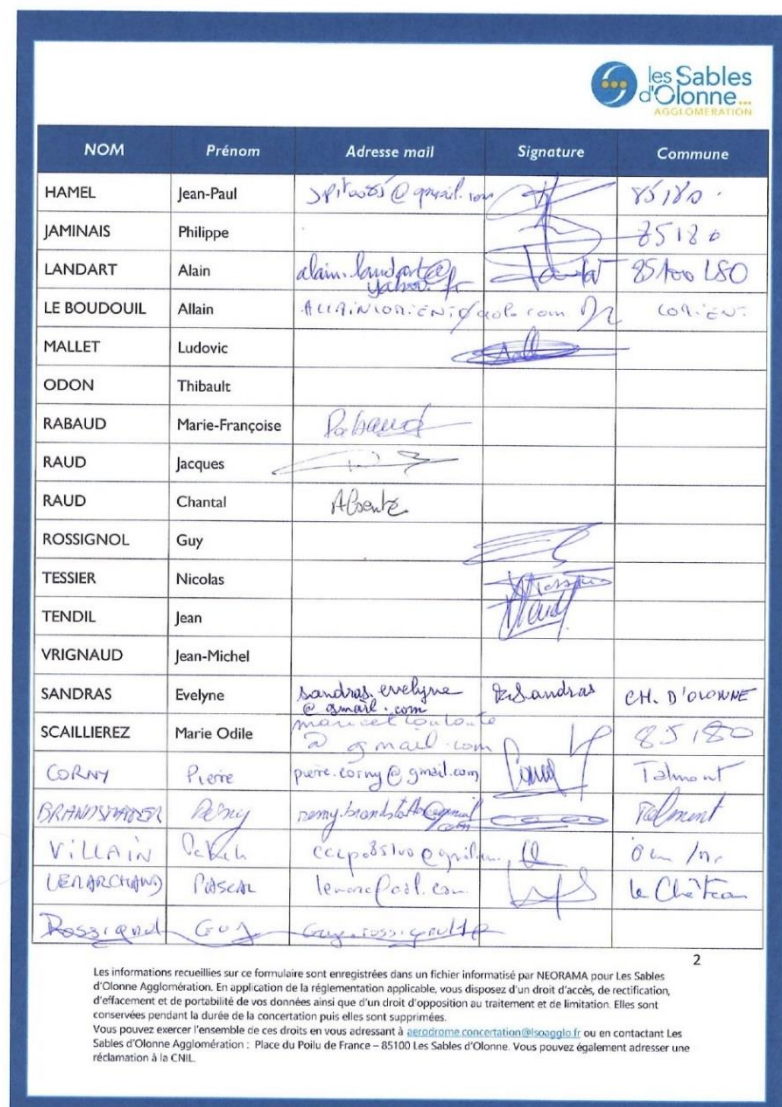 les Sables
d'Olonne...
AGGLOMERATION
NOM Prénom Adresse mail Signature Commune
HAMEL Jean-Paul @gmail.com 85180
JAMINAIS Philippe 85180
LANDART Alain alain.landart@ 85100 LSO
yahoo.fr
LE BOUDOUIL Allain
MALLET Ludovic
ODON Thibault
RABAUD Marie-Françoise Rabaud
RAUD Jacques
RAUD Chantal Absente
ROSSIGNOL Guy
TESSIER Nicolas
TENDIL Jean
VRIGNAUD Jean-Michel
SANDRAS Evelyne sandras.evelyne Sandras CH. D'OLONNE
@ gmail.com
SCAILLIEREZ Marie Odile 85180
@ gmail.com
CORNY Pierre pierre.corny@gmail.com Talmont
Talmont
VILLAIN
LEMARCHAND PASCAL le Château
Rossignol Guy
2
Les informations recueillies sur ce formulaire sont enregistrées dans un fichier informatisé par NEORAMA pour Les Sables
d'Olonne Agglomération. En application de la réglementation applicable, vous disposez d'un droit d'accès, de rectification,
d'effacement et de portabilité de vos données ainsi que d'un droit d'opposition au traitement et de limitation. Elles sont
conservées pendant la durée de la concertation puis elles sont supprimées.
Vous pouvez exercer l'ensemble de ces droits en vous adressant à aerodrome.concertation@lsoagglo.fr ou en contactant Les
Sables d'Olonne Agglomération : Place du Poilu de France – 85100 Les Sables d'Olonne. Vous pouvez également adresser une
réclamation à la CNIL.